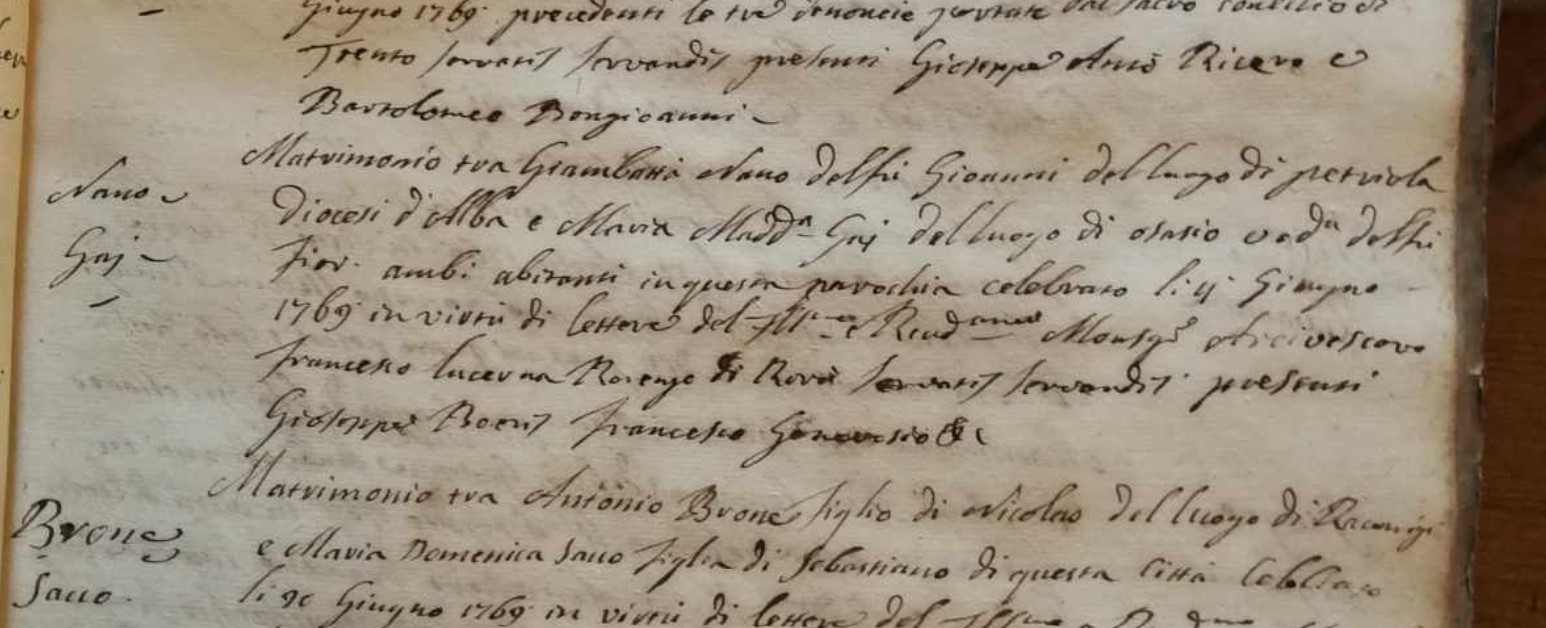 Giugno 1769 precedenti le tre denoncie portate dal sacro concilio di
Trento servatis servandis presenti Gioseppe Antō Ricero e
Bartolomeo Bongioanni
Matrimonio tra Giambatta Nano del fu Gioanni del luogo di petriola
Nano
Diocesi d'Alba e Maria Madd.a Gaj del luogo di osasio ved.a del fu
Gaj
fior. ambi abitanti in questa parochia celebrato li 4 Giugno
1769 in virtù di lettere del Ill.mo e Rend.mo Monsg.r Arcivescovo
francesco lucerna Rorengo di Rorà servatis servandis presenti
Gioseppe Boeris francesco &c
Matrimonio tra Antonio Brone figlio di Nicolao del luogo di Raconigi
Brone
e Maria Domenica Sano figlia di Sebastiano di questa Città Celebrato
Sano
li Giugno 1769 in virtù di lettere del Ill.mo